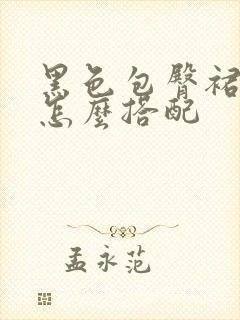 黑色包臀裙
怎麼搭配
孟永范